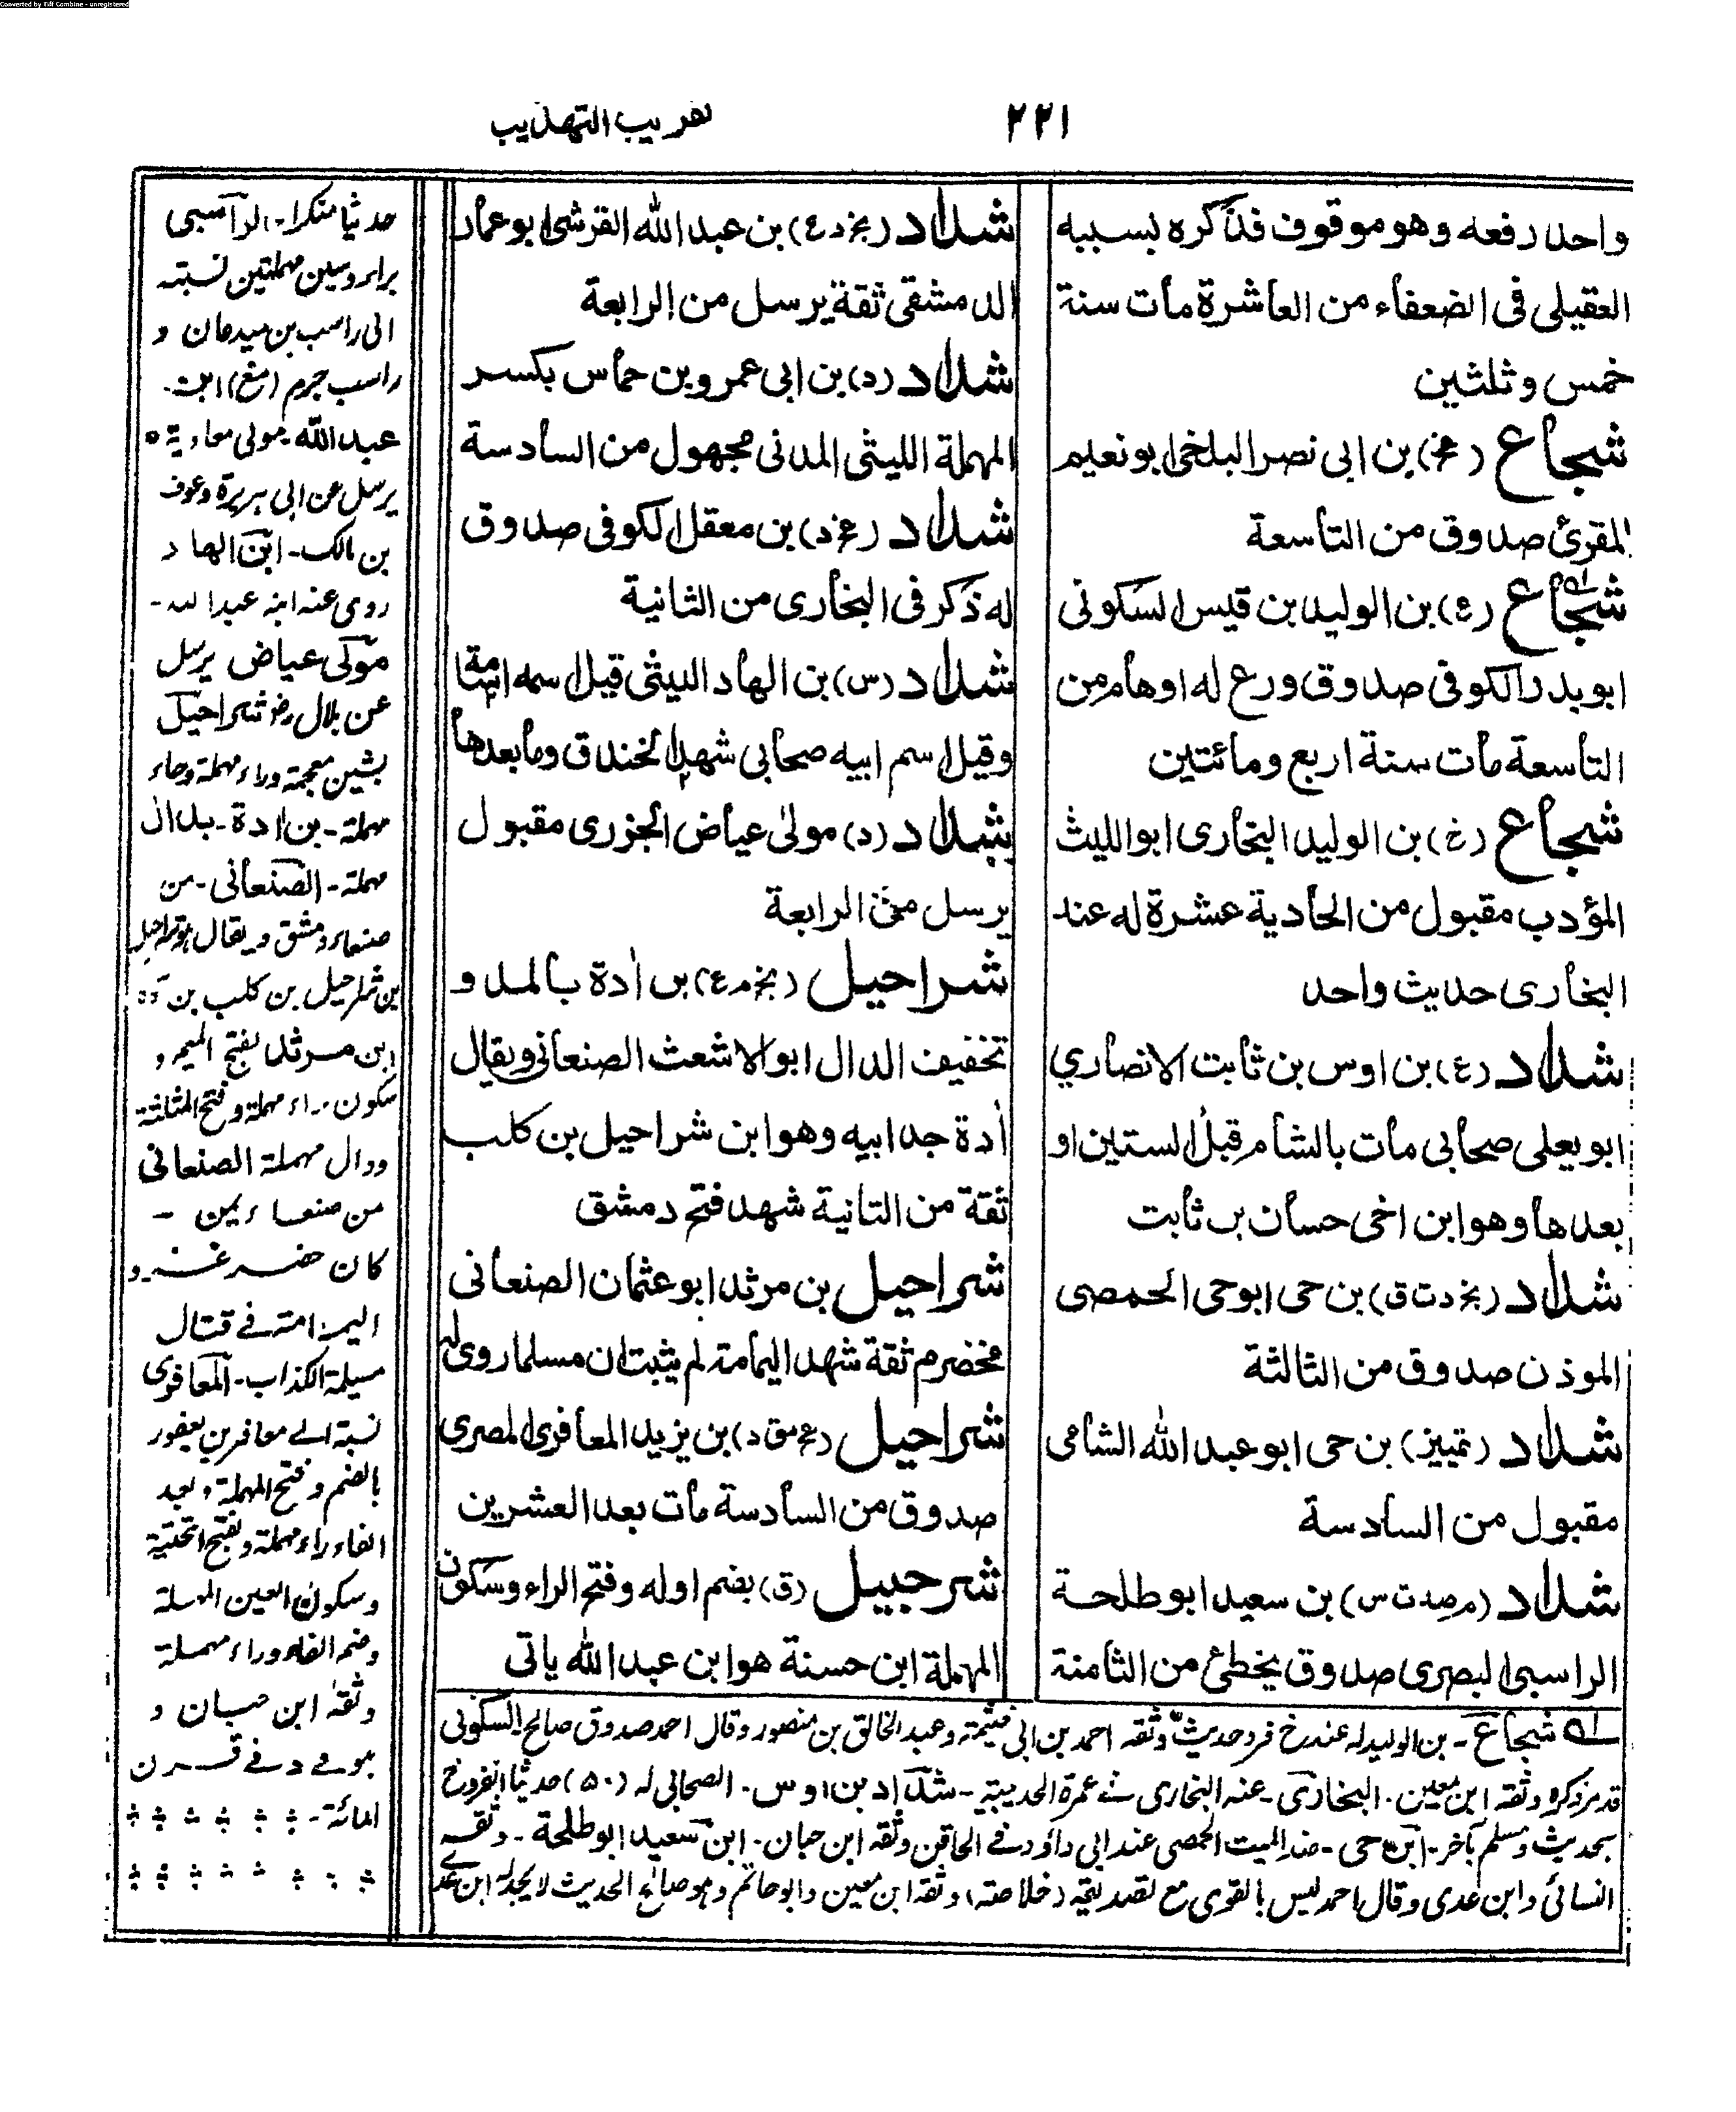 Converted by Tiff Combine - unregistered
٢٢١
تقريب التهذيب
واحد رفعه وهو موقوف فذكره بسببه
العقيلى فى الضعفاء من العاشرة مات سنة
خمس وثلثين
شجاع (عخ) بن ابى نصر البلخى ابو نعيم
المقرئ صدوق من التاسعة
شجاع (ع) بن الوليد بن قيس السكونى
ابو بدر الكوفى صدوق ورع له اوهام من
التاسعة مات سنة اربع ومائتين
شجاع (خ) بن الوليد البخارى ابو الليث
المؤدب مقبول من الحادية عشرة له عند
البخارى حديث واحد
شداد (ع) بن اوس بن ثابت الانصاري
ابو يعلى صحابى مات بالشام قبل الستين او
بعدها وهو ابن اخى حسان بن ثابت
شداد (بخ د ت ق) بن حى ابو حى الحمصى
الموذن صدوق من الثالثة
شداد (تمييز) بن حى ابو عبد الله الشامى
مقبول من السادسة
شداد (م صد ت س) بن سعيد ابو طلحة
الراسبى البصرى صدوق يخطئ من الثامنة
شداد (بخ د ع) بن عبد الله القرشى ابو عمار
الدمشقى ثقة يرسل من الرابعة
شداد (د) بن ابى عمرو بن حماس بكسر
المهملة الليثى المدنى مجهول من السادسة
شداد (عخ د) بن معقل الكوفى صدوق
له ذكر فى البخارى من الثانية
شداد (س) بن الهاد الليثى قيل اسمه اسامة
وقيل اسم ابيه صحابى شهد الخندق وما بعدها
شداد (د) مولىٰ عياض الجزرى مقبول
يرسل من الرابعة
شراحيل (بخ م ع) بن اٰدة بالمد و
تخفيف الدال ابو الاشعث الصنعانى ويقال
اٰدة جد ابيه وهو ابن شراحيل بن كلب
ثقة من الثانية شهد فتح دمشق
شراحيل بن مرثد ابو عثمان الصنعانى
مخضرم ثقة شهد اليمامة لم يثبت ان مسلما روى له
شراحيل (عخ مق د) بن يزيد المعافرى المصرى
صدوق من السادسة مات بعد العشرين
شرحبيل (ق) بضم اوله وفتح الراء وسكون
المهملة ابن حسنة هو ابن عبد الله ياتى
حديثا منكرا - الراسبى
براء وسين مهملتين نسبته
الى راسب بن ميدعان و
راسب جرم (مغ) ابن -
عبد الله - مولى معاوية
يرسل عن ابى هريرة وعوف
بن مالك - ابن الهاد
روى عنه ابنه عبد الله -
مولى عياض يرسل
عن بلال رض شراحيل
بشين معجمة وراء مهملة وحاء
مهملة - بن اٰدة - بدال
مهملة - الصنعانى - من
صنعاء دمشق ويقال هو شراحيل
بن شراحيل بن كلب بن
ابن مرثد بفتح الميم و
سكون راء مهملة وفتح المثلثة
ودال مهملة الصنعانى
من صنعاء يمن -
كان حضر غزو
اليمامة فے قتال
مسيلمة الكذاب - المعافرى
نسبة الے معافر بن يعفور
بالضم وفتح المهملة وبعد
الفاء راء مهملة وبفتح التحتية
وسكون العين المهملة
وضم الفاء وراء مهملة
وثقه ابن حبان و
المائة -
له شجاع - بن الوليد له عند خ فرد حديث وثقه احمد بن ابى خيثمة وعبد الخالق بن منصور وقال احمد صدوق صالح السكونى
قد مر ذكره وثقه ابن معين - البخارى - عنه البخارى فے عمرة الحديبية - شداد بن اوس - الصحابى له (٥٠) حديثا انفرد خ
بحديث ومسلم بآخر - ابن حى - ضد الميت الحمصى عند ابى داؤد فے الحاقن وثقه ابن حبان - ابن سعيد ابو طلحة - وثقه
النسائى وابن عدى وقال احمد ليس بالقوى مع تصديقه (خلاصة) وثقه ابن معين وابو حاتم وهو صالح الحديث